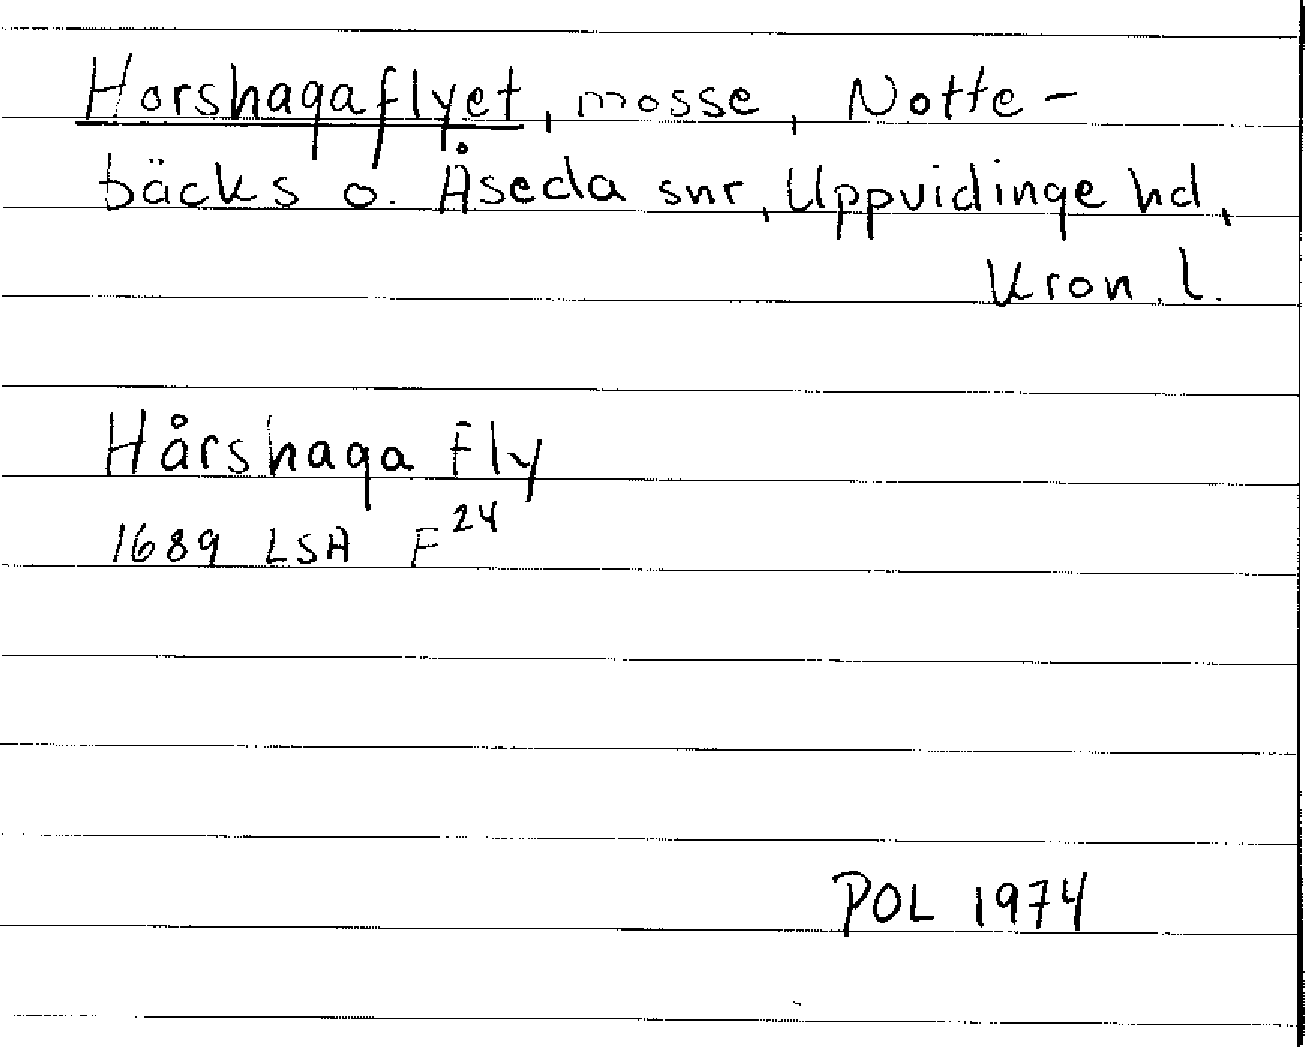 Horshagaflyet, mosse, Notte-
bäcks o. Åseda snr, Uppvidinge hd,
Kron. l.
Hårshaga Fly
1689 LSA F24
POL 1974